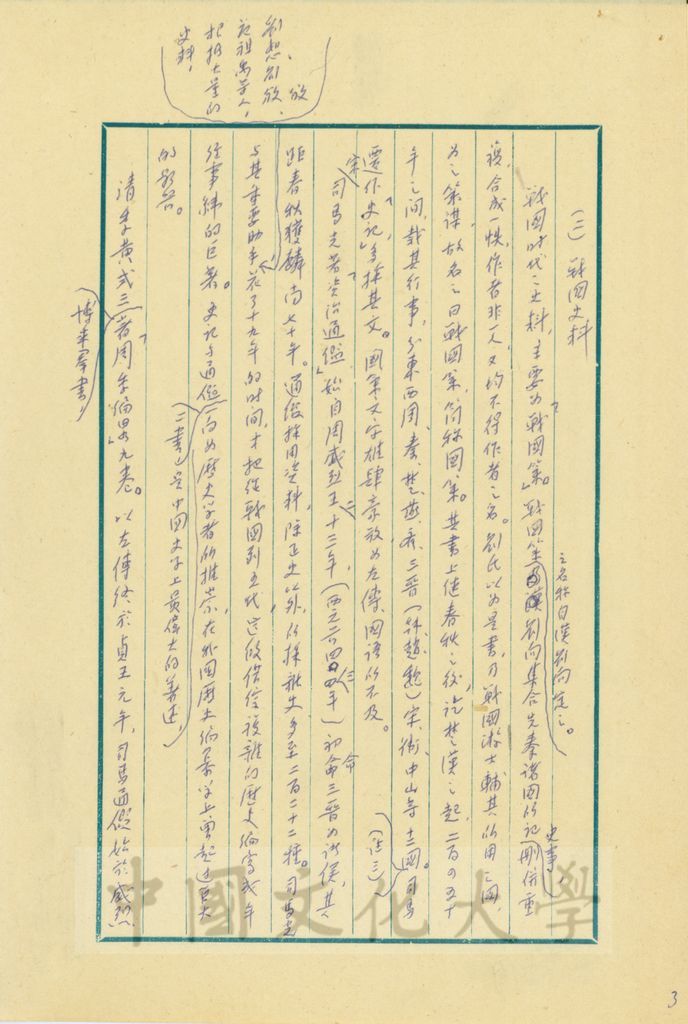 (二) 戰國史料
戰國時代之史料，主要為「戰國策」。戰國策之名稱自漢劉向定之。漢劉向集合先秦諸國所記史事，刪併重
複，合成一帙，作者非一人，又均不得作者之名。劉氏以為是書，乃戰國游士輔其所用之國，
為之策謀，故名之曰戰國策，簡稱國策。其書上繼春秋之後，訖楚漢之起，二百四五十
年之間，載其行事，分東西周、秦、楚、燕、齊、三晉（韓、趙、魏）宋、衛、中山等十二國。司馬
遷作「史記」多採其文。國策文字雄肆豪放為左傳、國語所不及。（註三）
宋司馬光著「資治通鑑」始自周威烈王二十三年，（西元前四〇三年）初命三晉為諸侯，其
距春秋獲麟尚七十年。通鑑採用資料，除正史以外，所採雜史多至二百二十二種。司馬光
與其重要助手劉恕、劉攽、范祖禹等人，把握大量的史料，花了十九年的時間，才把從戰國到五代這段錯綜複雜的歷史編寫成年
經事緯的巨著。史記與通鑑二書，是中國史學上最偉大的著述，為歷史學者所推崇，在外國歷史編纂學上曾起過巨大
的影響。
清季黃式三博采羣書，著「周季編略」九卷。以左傳終於貞王元年，司馬通鑑始於威烈
3
中國文化大學